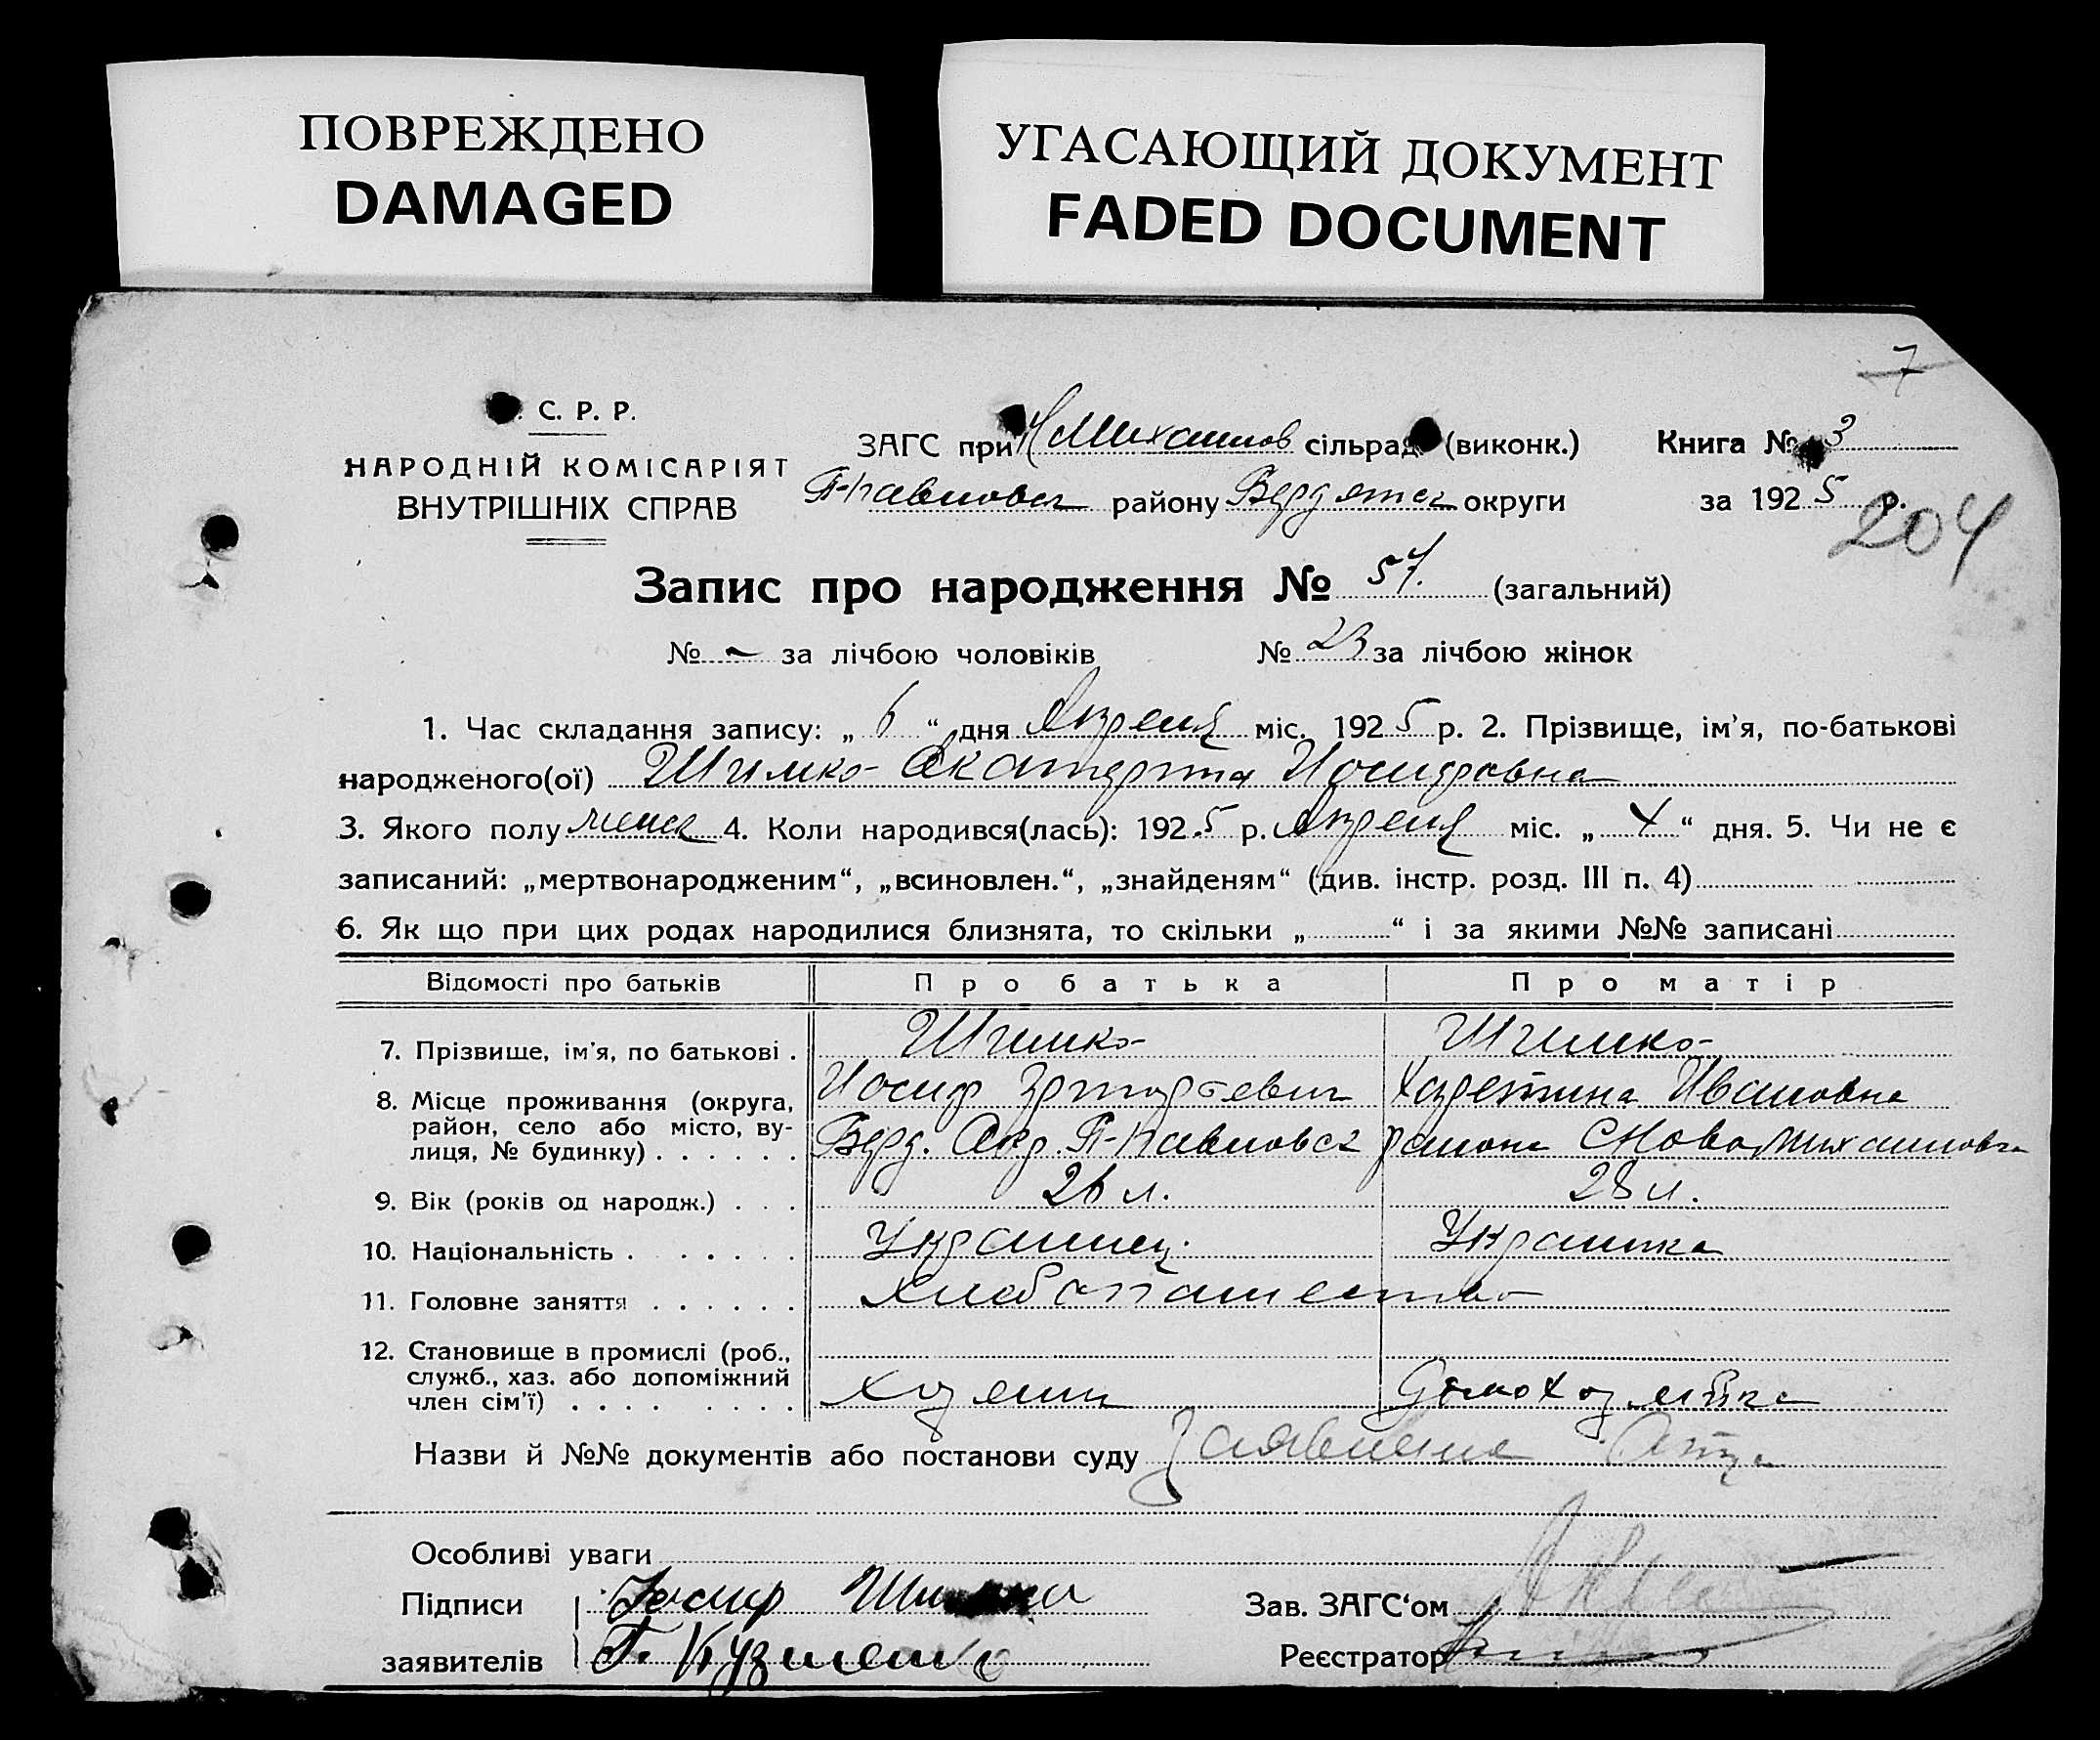 ПОВРЕЖДЕНО
DAMAGED
УГАСАЮЩИЙ ДОКУМЕНТ
FADED DOCUMENT
7
С. Р. Р.
НАРОДНІЙ КОМІСАРІЯТ
ВНУТРІШНІХ СПРАВ
ЗАГС при Н Михайлов сільрад (виконк.) Книга № 3
П-Павловск району Бердянск округи за 1925 р.
204
Запис про народження № 57. (загальний)
№ - за лічбою чоловіків № 23 за лічбою жінок
1. Час складання запису: „ 6 “ дня Апреля міс. 1925 р. 2. Прізвище, ім'я, по-батькові
народженого(ої) Шимко Екатерина Иосифовна
3. Якого полу женск 4. Коли народився(лась): 1925 р. Апреля міс. „ 4 “ дня. 5. Чи не є
записаний: „мертвонародженим“, „всиновлен.“, „знайденям“ (див. інстр. розд. III п. 4)
6. Як що при цих родах народилися близнята, то скільки „ “ і за якими №№ записані
Відомості про батьків Про батька Про матір
7. Прізвище, ім'я, по батькові . Шимко Шимко
Иосиф Ивановна
8. Місце проживання (округа,
район, село або місто, ву-
лиця, № будинку) . . . . . . Берд. Окр. П-Павловск района С Ново Михайловка
9. Вік (років од народж.) . . . 26 л. 28 л.
10. Національність . . . . . . Украинец. Украинка
11. Головне заняття . . . . . . Хлебопашество
12. Становище в промислі (роб.,
служб., хаз. або допоміжний
член сім'ї) . . . . . . . . хозяин домохозяйка
Назви й №№ документів або постанови суду Заявление Отца
Особливі уваги
Підписи Иосиф Шимко Зав. ЗАГС'ом
заявителів Г. Кузменко Реєстратор